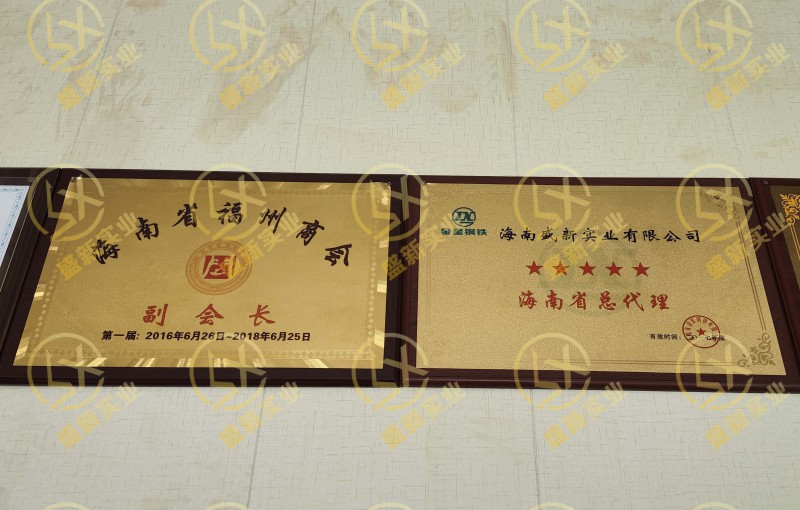 海南省福州商会
副会长
第一届: 2016年6月26日~2018年6月25日
金玺钢铁
海南盛新实业有限公司
★★★★★
海南省总代理
有效时间:
盛新实业